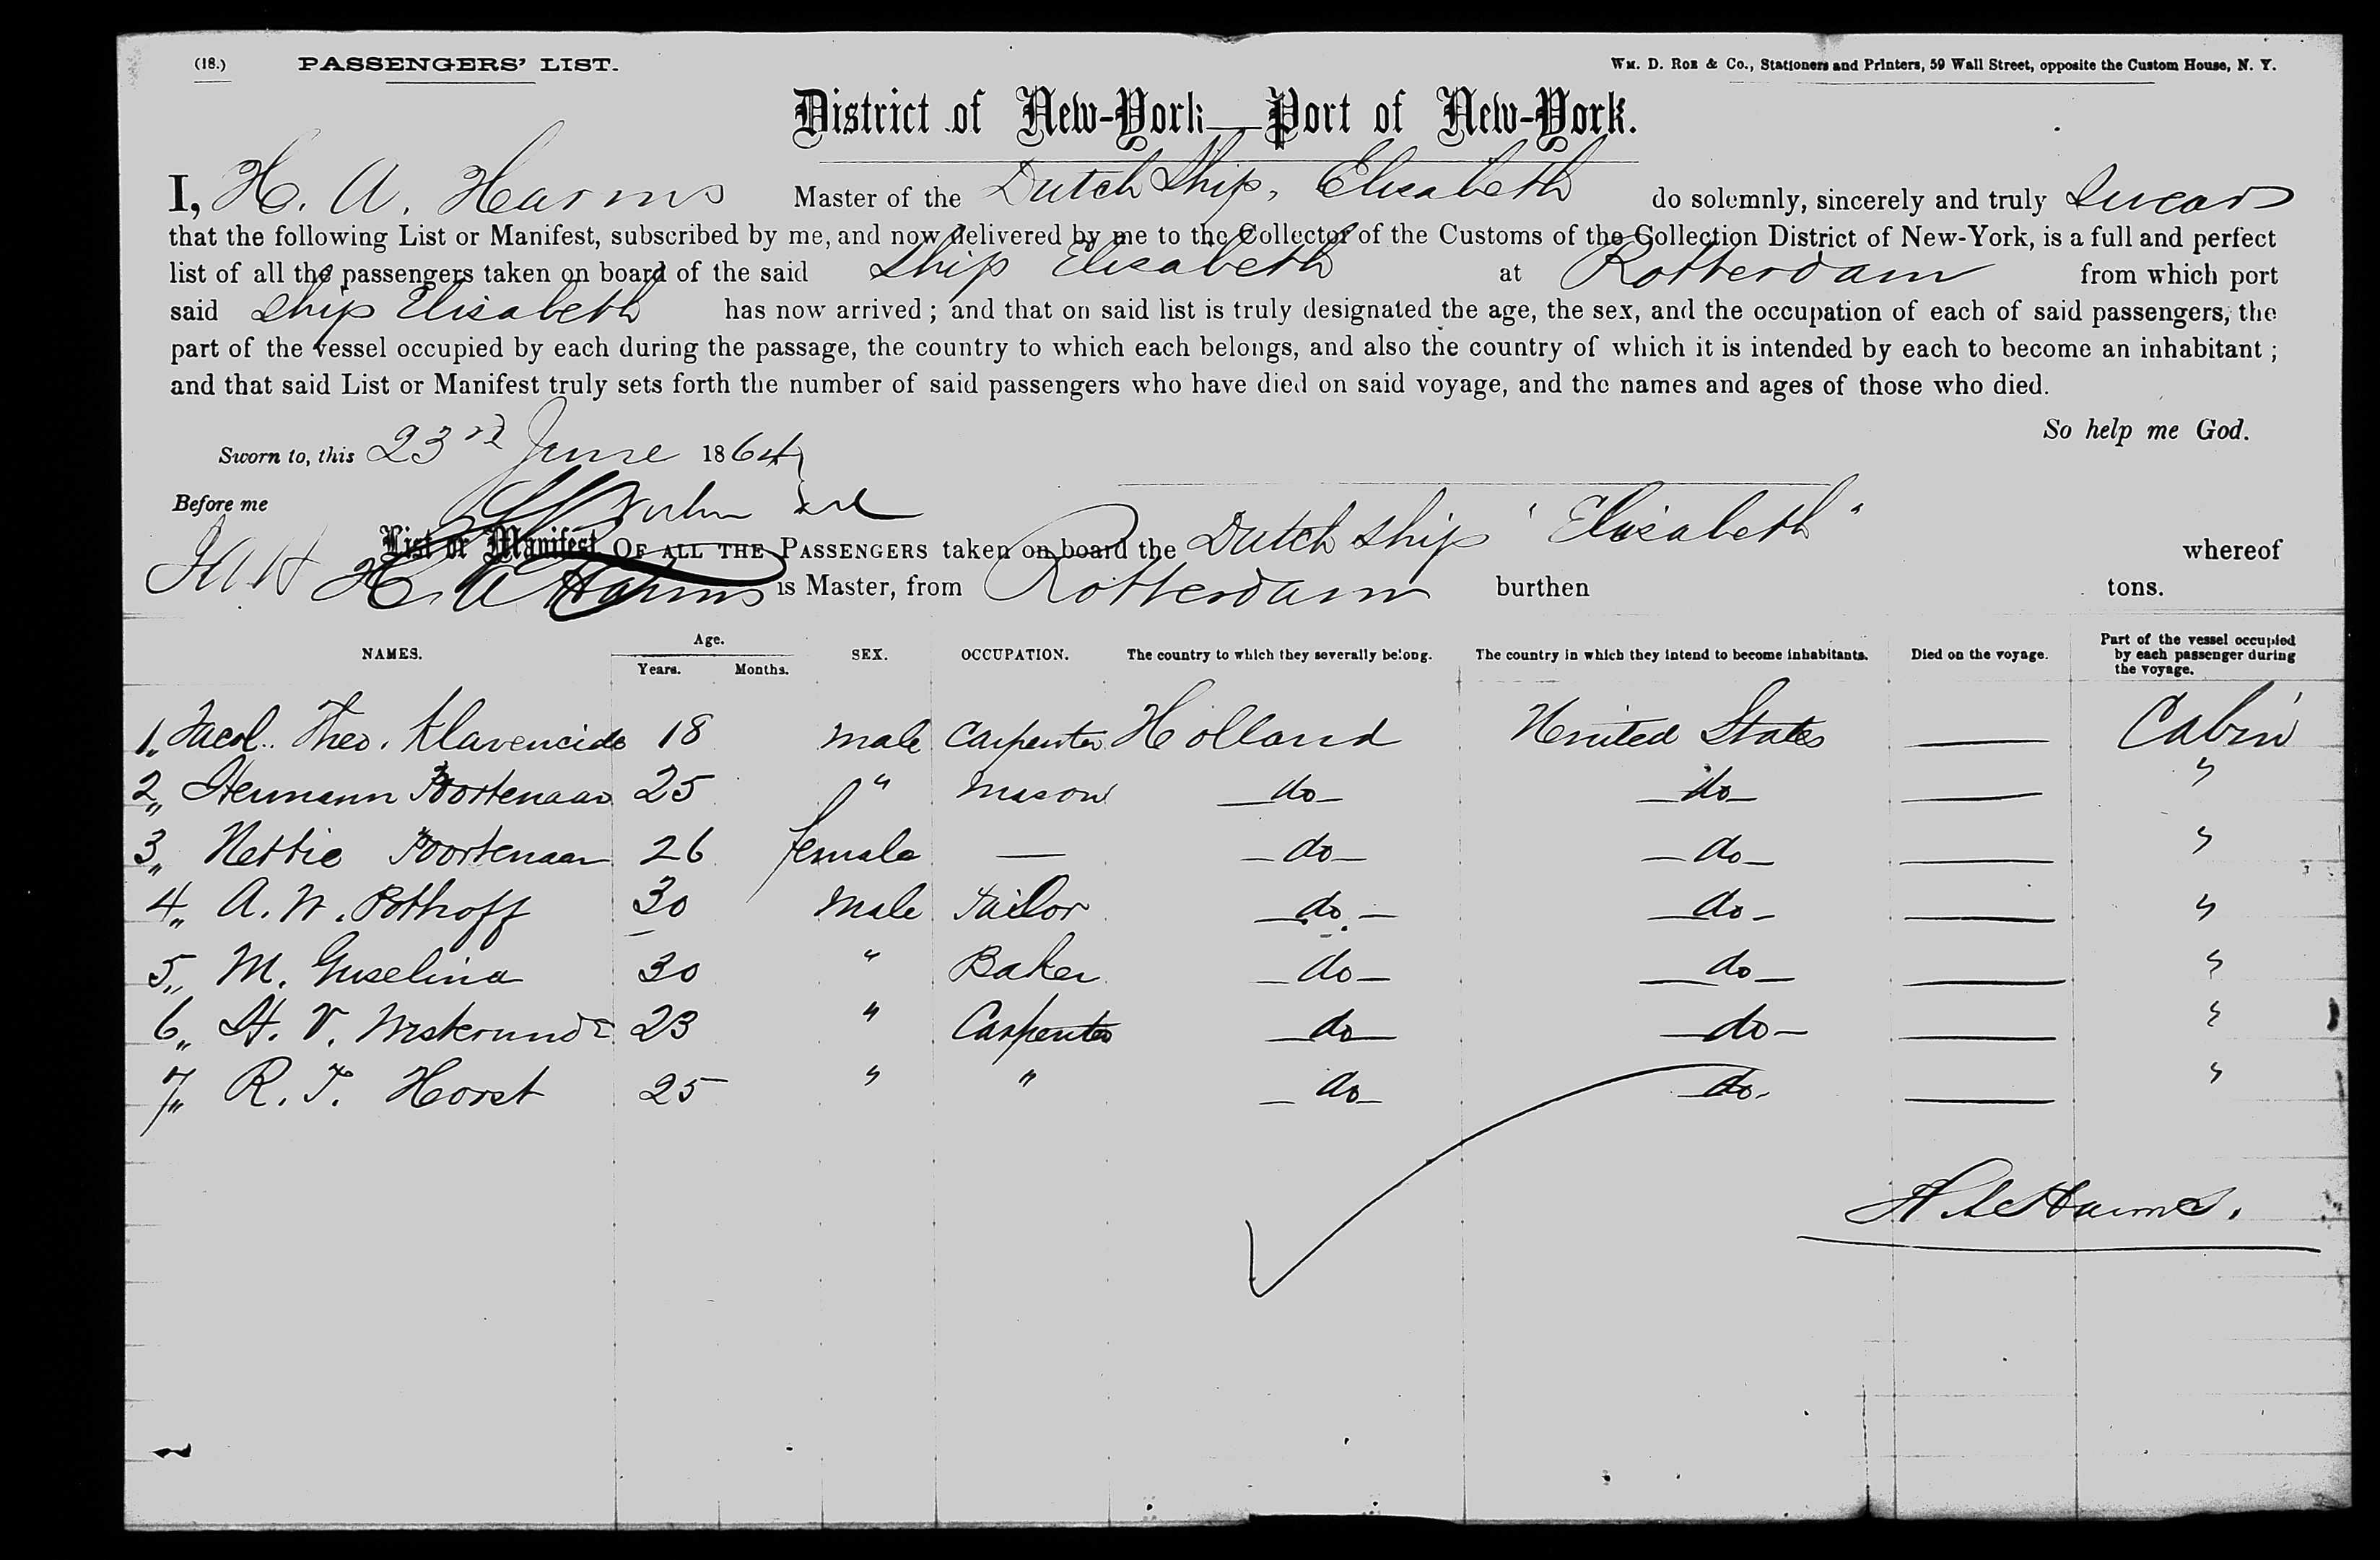 (18.) PASSENGERS' LIST. Wm. D. Roe & Co., Stationers and Printers, 59 Wall Street, opposite the Custom House, N. Y.
District of New-York—Port of New-York.
I, H. A. Harms Master of the Dutch Ship, Elisabeth do solemnly, sincerely and truly swear
that the following List or Manifest, subscribed by me, and now delivered by me to the Collector of the Customs of the Collection District of New-York, is a full and perfect
list of all the passengers taken on board of the said Ship Elisabeth at Rotterdam from which port
said Ship Elisabeth has now arrived; and that on said list is truly designated the age, the sex, and the occupation of each of said passengers, the
part of the vessel occupied by each during the passage, the country to which each belongs, and also the country of which it is intended by each to become an inhabitant;
and that said List or Manifest truly sets forth the number of said passengers who have died on said voyage, and the names and ages of those who died.
So help me God.
Sworn to, this 23rd June 1864
Before me
List or Manifest OF ALL THE PASSENGERS taken on board the Dutch Ship "Elisabeth" whereof
H. A Harms is Master, from Rotterdam burthen tons.
NAMES. Age. Years. Months. SEX. OCCUPATION. The country to which they severally belong. The country in which they intend to become inhabitants. Died on the voyage. Part of the vessel occupied by each passenger during the voyage.
1„ Jacob. Theo. 18 male Carpenter Holland United States — Cabin
2„ Hermann Poortenaar 25 " Mason —do— —do— — "
3„ Nettie Poortenaar 26 female — —do— —do— — "
4„ A. W. Pothoff 30 Male Tailor —do.— —do— — "
5„ M. Guselina 30 " Baker —do— —do— — "
6„ H. V. 23 " Carpenter —do— —do— — "
7„ R. T. Horst 25 " " —do— —do. — "
H A Harms.